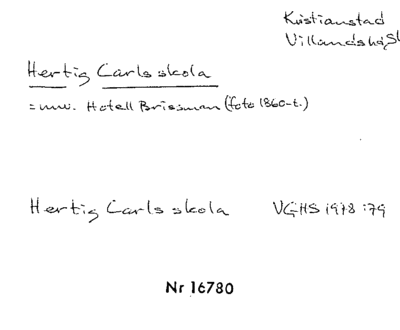 Kristianstad
Villandshäst
Hertig Carls skola
= nuv. Hotell Brissman (foto 1860-t.)
Hertig Carls skola VGHS 1978:79
Nr 16780